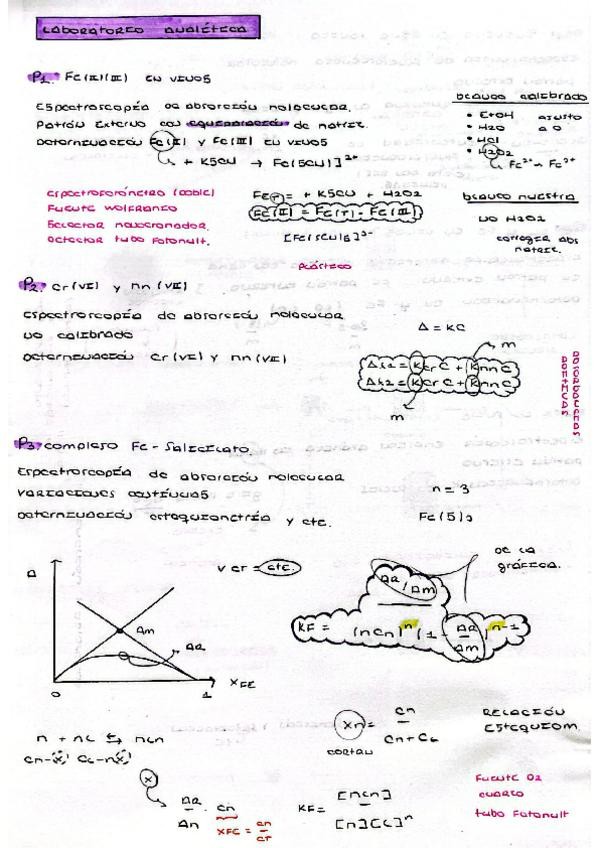 LABORATORIO ANALÍTICA
P1. Fe(II)(III) EN VINOS
ESPECTROSCOPÍA DE ABSORCIÓN MOLECULAR
PATRÓN EXTERNO CON EQUIPARACIÓN DE MATRIZ.
DETERMINACIÓN Fe(II) Y Fe(III) EN VINOS
+ KSCN → Fe(SCN)]²⁺
BLANCO CALIBRADO
• EtOH AJUSTO
• H2O A 0
• HCl
• H2O2
Fe²⁺ → Fe³⁺
ESPECTROFOTÓMETRO (DOBLE)
FUENTE WOLFRAMIO
SELECTOR MONOCROMADOR.
DETECTOR TUBO FOTOMULT.
Fe(T) = + KSCN + H2O2
Fe(II) = Fe(T) - Fe(III)
[Fe(SCN)6]³⁻
BLANCO MUESTRA
NO H2O2
CORREGIR ABS
MATRIZ.
PLÁSTICO
P2. Cr(VI) y Mn(VII)
ESPECTROSCOPÍA DE ABSORCIÓN MOLECULAR
NO CALIBRADO
DETERMINACIÓN Cr(VI) y Mn(VII)
A = KC
m
Aλ1 = KCr C + KMn C
Aλ2 = KCr C + KMn C
m
P3. COMPLEJO Fe - SALICILATO
ESPECTROSCOPÍA DE ABSORCIÓN MOLECULAR
VARIACIONES CONTÍNUAS
DETERMINACIÓN ESTEQUIOMETRÍA y cte.
n = 3
Fe(S)3
A
Am
AR
0
1
XFe
V CT = CTE.
DE LA
GRÁFICA.
KF = AR/Am
(nCM)ⁿ (1 - AR/Am)ⁿ⁻¹
M + nL ⇆ MLn
CM-(x) CL-n(x)
XM = CM
CM+CL
CORTAN
RELACIÓN
ESTEQUIOM.
x
AR . CM
Am
XFe = CM
CT
KF = [MLn]
[M][L]ⁿ
FUENTE D2
CUARZO
TUBO FOTOMULT